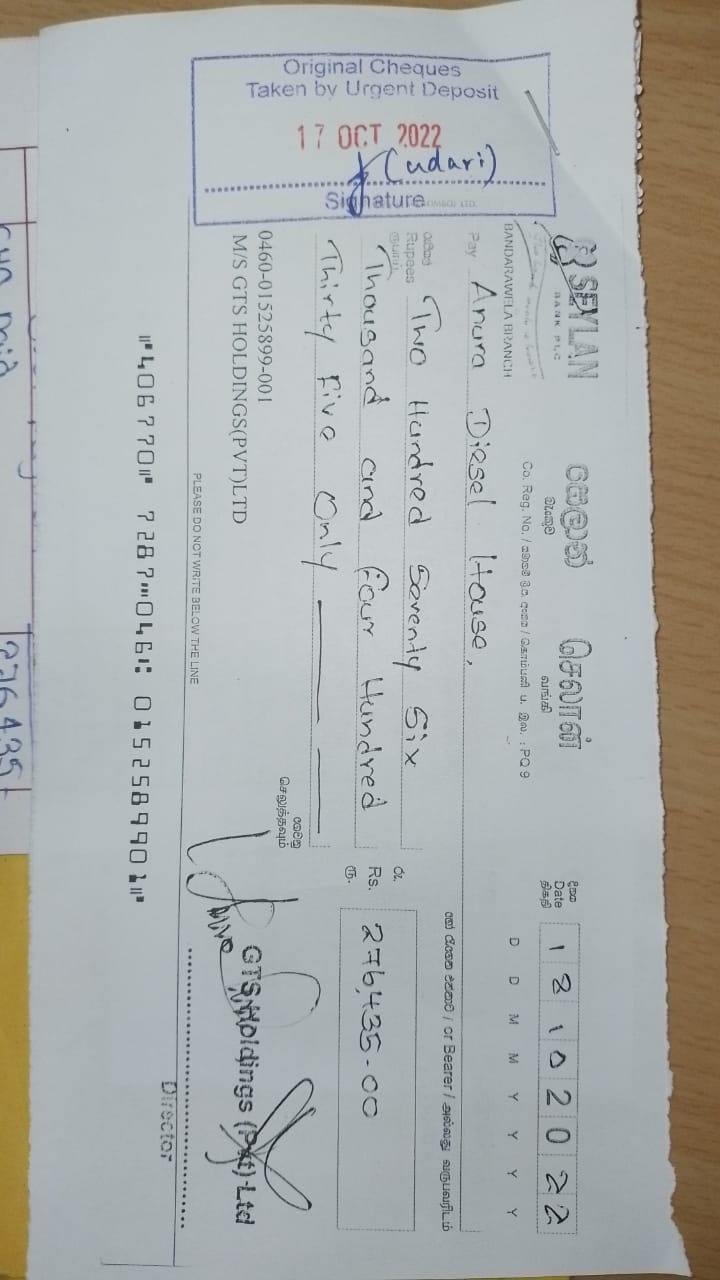 Original Cheques
Taken by Urgent Deposit
17 OCT 2022
(udari)
Signature
SEYLAN
BANK PLC
සෙලාන්
බැංකුව
செலான்
வங்கி
දිනය
Date
திகதி
1 8 1 0 2 0 2 2
D D M M Y Y Y Y
BANDARAWELA BRANCH
Co. Reg. No. / PQ 9
Pay Anura Diesel House,
/ or Bearer / அல்லது வருபவரிடம்
රුපියල්
Rupees
ரூபாய்
Two Hundred Seventy Six
Thousand and Four Hundred
Thirty Five Only
රු.
Rs.
ரூ.
276,435-00
ගෙවනු
செலுத்தவும்
0460-01525899-001
M/S GTS HOLDINGS(PVT)LTD
GTS Holdings (Pvt) Ltd
Director
PLEASE DO NOT WRITE BELOW THE LINE
⑈406770⑈ 7287⑉046⑆ 0152589901⑈
276435